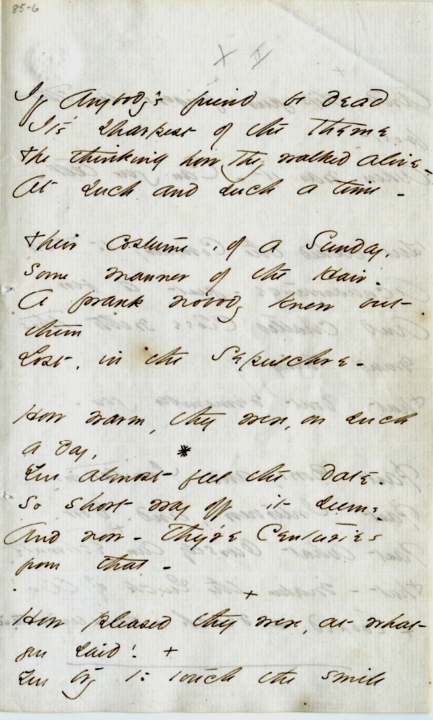 85-6
X II
If Anybody's friend be dead
It's sharpest of the theme
The thinking how they walked alive -
At such and such a time -
Their costume, of a Sunday,
Some manner of the Hair -
A prank nobody knew but
them
Lost, in the Sepulchre -
How warm, they were, on such
a day, *
You almost feel the date -
So short way off it seems -
And now - they're Centuries
from that -
+
How pleased they were, at what
you said - +
You try to touch the smile